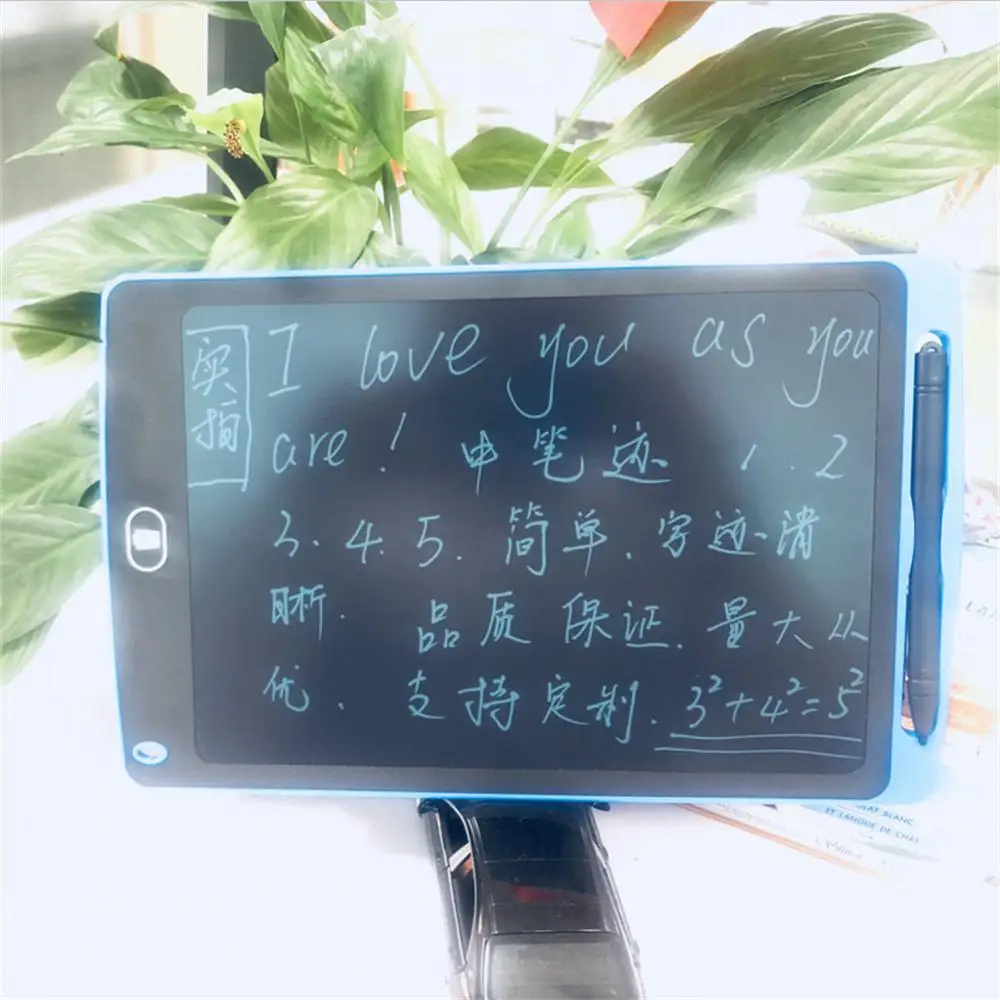 实拍
I love you as you
are! 中笔迹 1.2
3.4.5.简单.字迹清
晰. 品质保证.量大从
优. 支持定制. 3²+4²=5²
AT BLANC
ET LANGUE DE CHAT